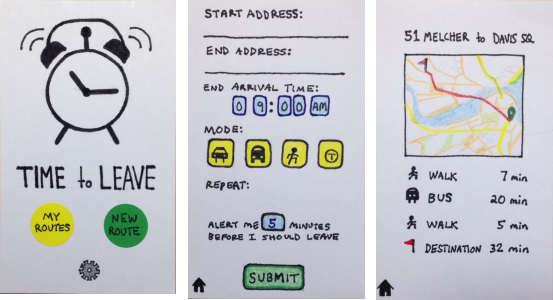 TIME to LEAVE
MY
ROUTES
NEW
ROUTE
START ADDRESS:
END ADDRESS:
END ARRIVAL TIME:
09:00 AM
MODE:
T
REPEAT:
ALERT ME 5 MINUTES
BEFORE I SHOULD LEAVE
SUBMIT
51 MELCHER to DAVIS SQ.
WALK 7 min
BUS 20 min
WALK 5 min
DESTINATION 32 min